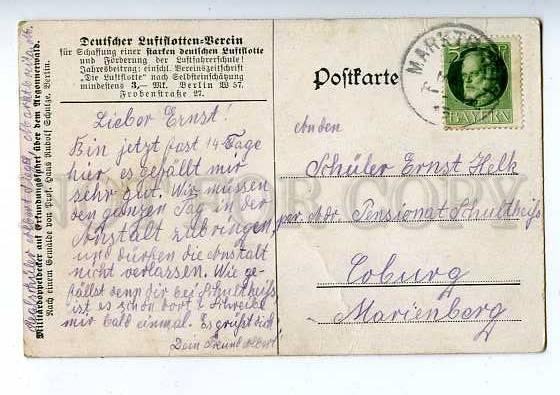 Deutscher Luftflotten-Verein
für Schaffung einer starken deutschen Luftflotte
und Förderung der Luftfahrerschule!
Jahresbeitrag: einschl. Vereinszeitschrift
"Die Luftflotte" nach Selbsteinschätzung
mindestens 3,— Mk. Berlin W 57.
Frobenstraße 27.
Lieber Ernst!
Bin jetzt fast 14 Tage
hier, es gefällt mir
sehr gut. Wir müssen
den ganzen Tag in der
Anstalt zubringen
und dürfen die Anstalt
nicht verlassen. Wie ge-
fällst denn dir bei Schultheiß
ist es schön dort? Schreibe
mir bald einmal. Es grüßt dich
Dein Freund Albert
Realschüler Albert
Militärdoppeldecker auf Erkundungsfahrt über dem Argonnerwald.
Nach einem Gemälde von Prof. Hans Rudolf Schulze, Berlin.
Postkarte
MARKT
BAYERN
An den
Schüler Ernst Helk
per Adr. Pensionat Schultheiß
Coburg
Marienberg